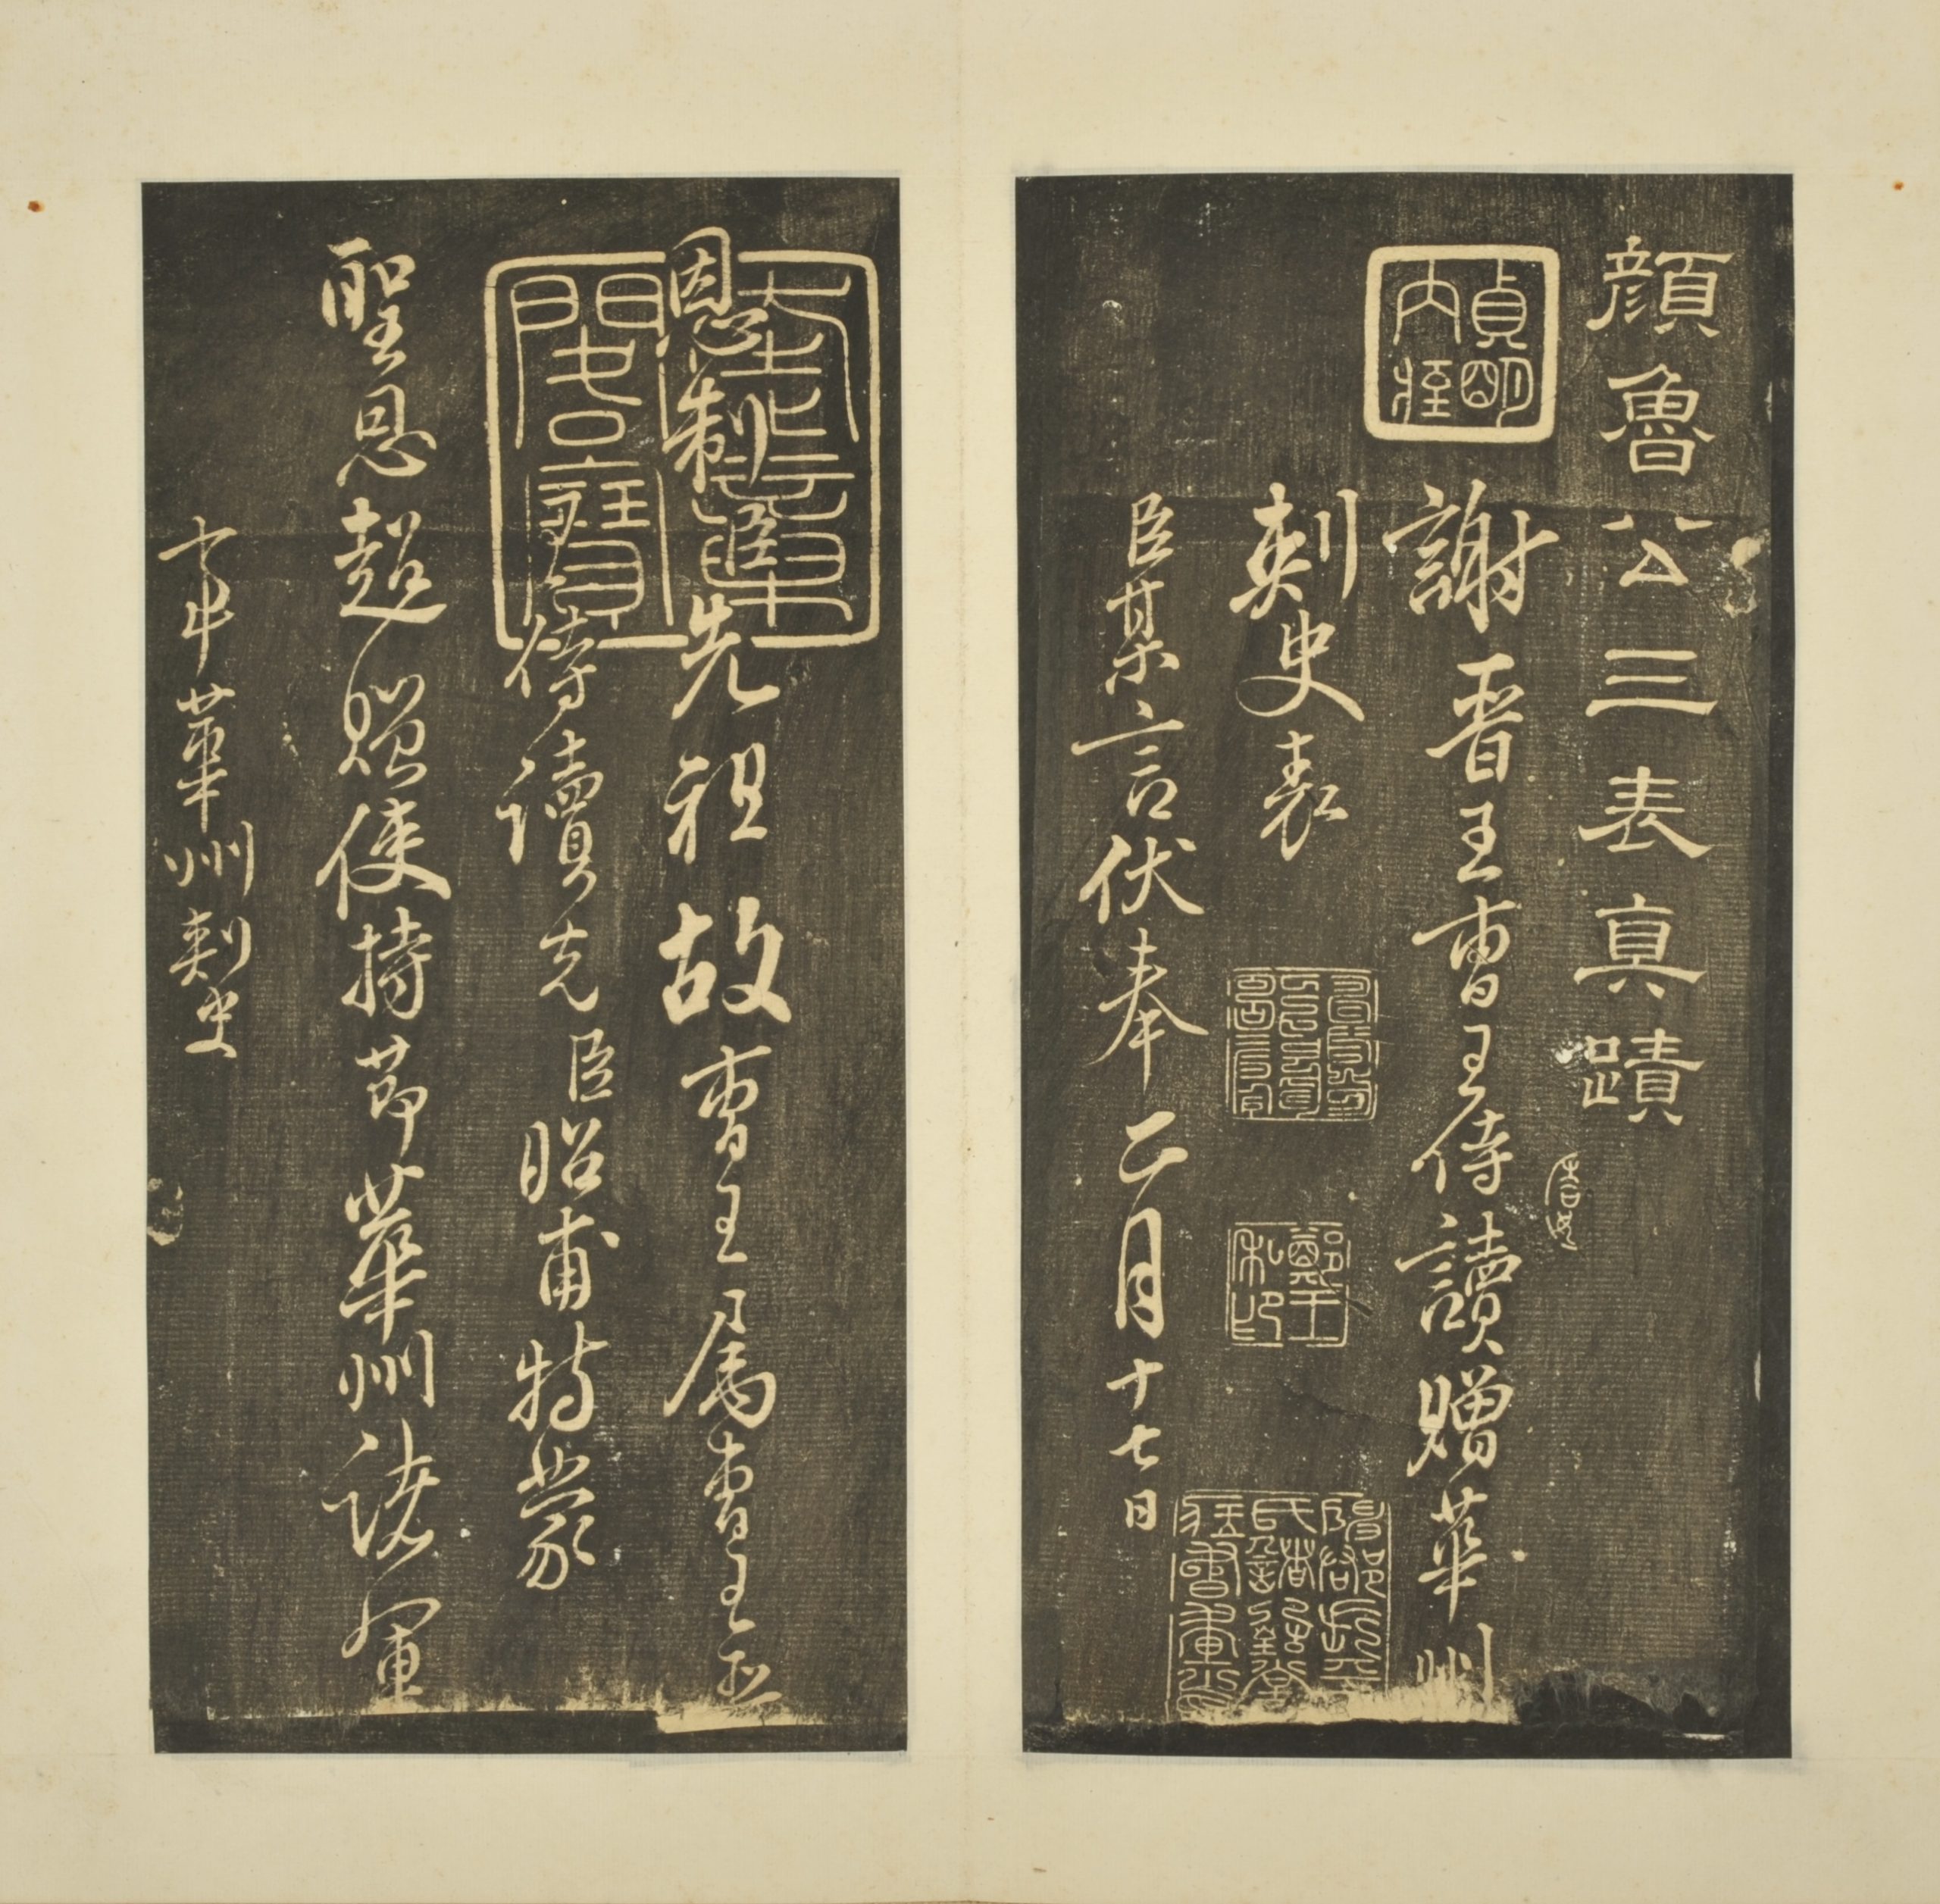 顏魯公三表真蹟
謝晉王曹王侍讀贈華州
刺史表
臣某言伏奉正月十七日
恩制臣先祖故曹王屬曹王
侍讀先臣昭甫特蒙
聖恩超贈使持節華州諸軍
事華州刺史
貞明內府
鄭王私印